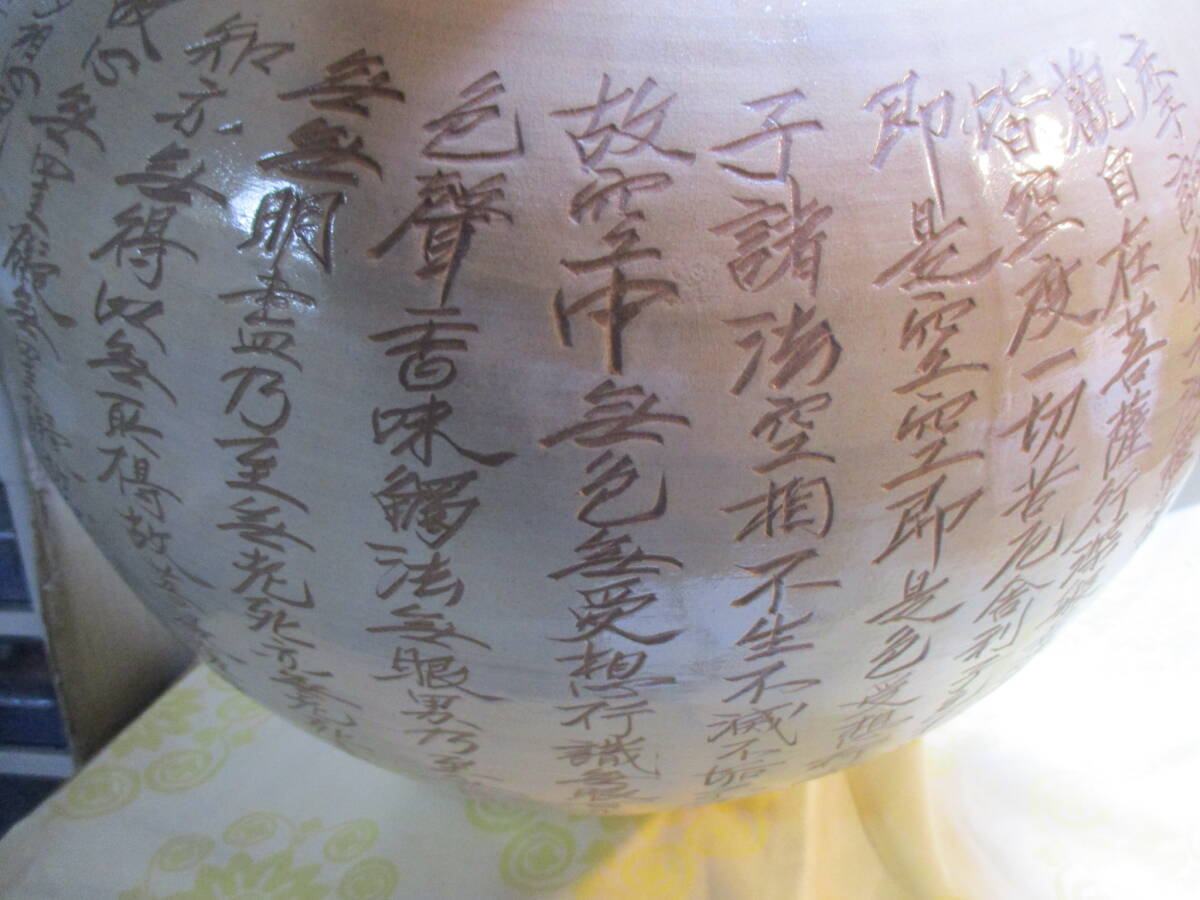 摩訶般
觀自在菩薩行深
皆空度一切苦厄舍利
即是空空即是色受想行
子諸法空相不生不滅不垢
故空中無色無受想行識無
色聲香味觸法無眼界乃至
無無明盡乃至無老死亦無
知亦無得以無所得故菩
心無罣礙無罣礙